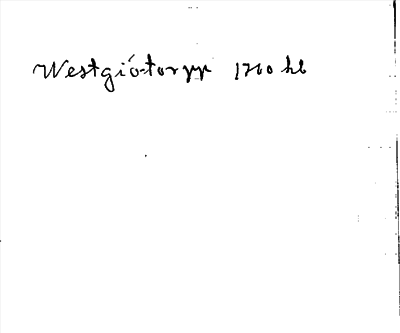 Westgiötorpp 1760 hl